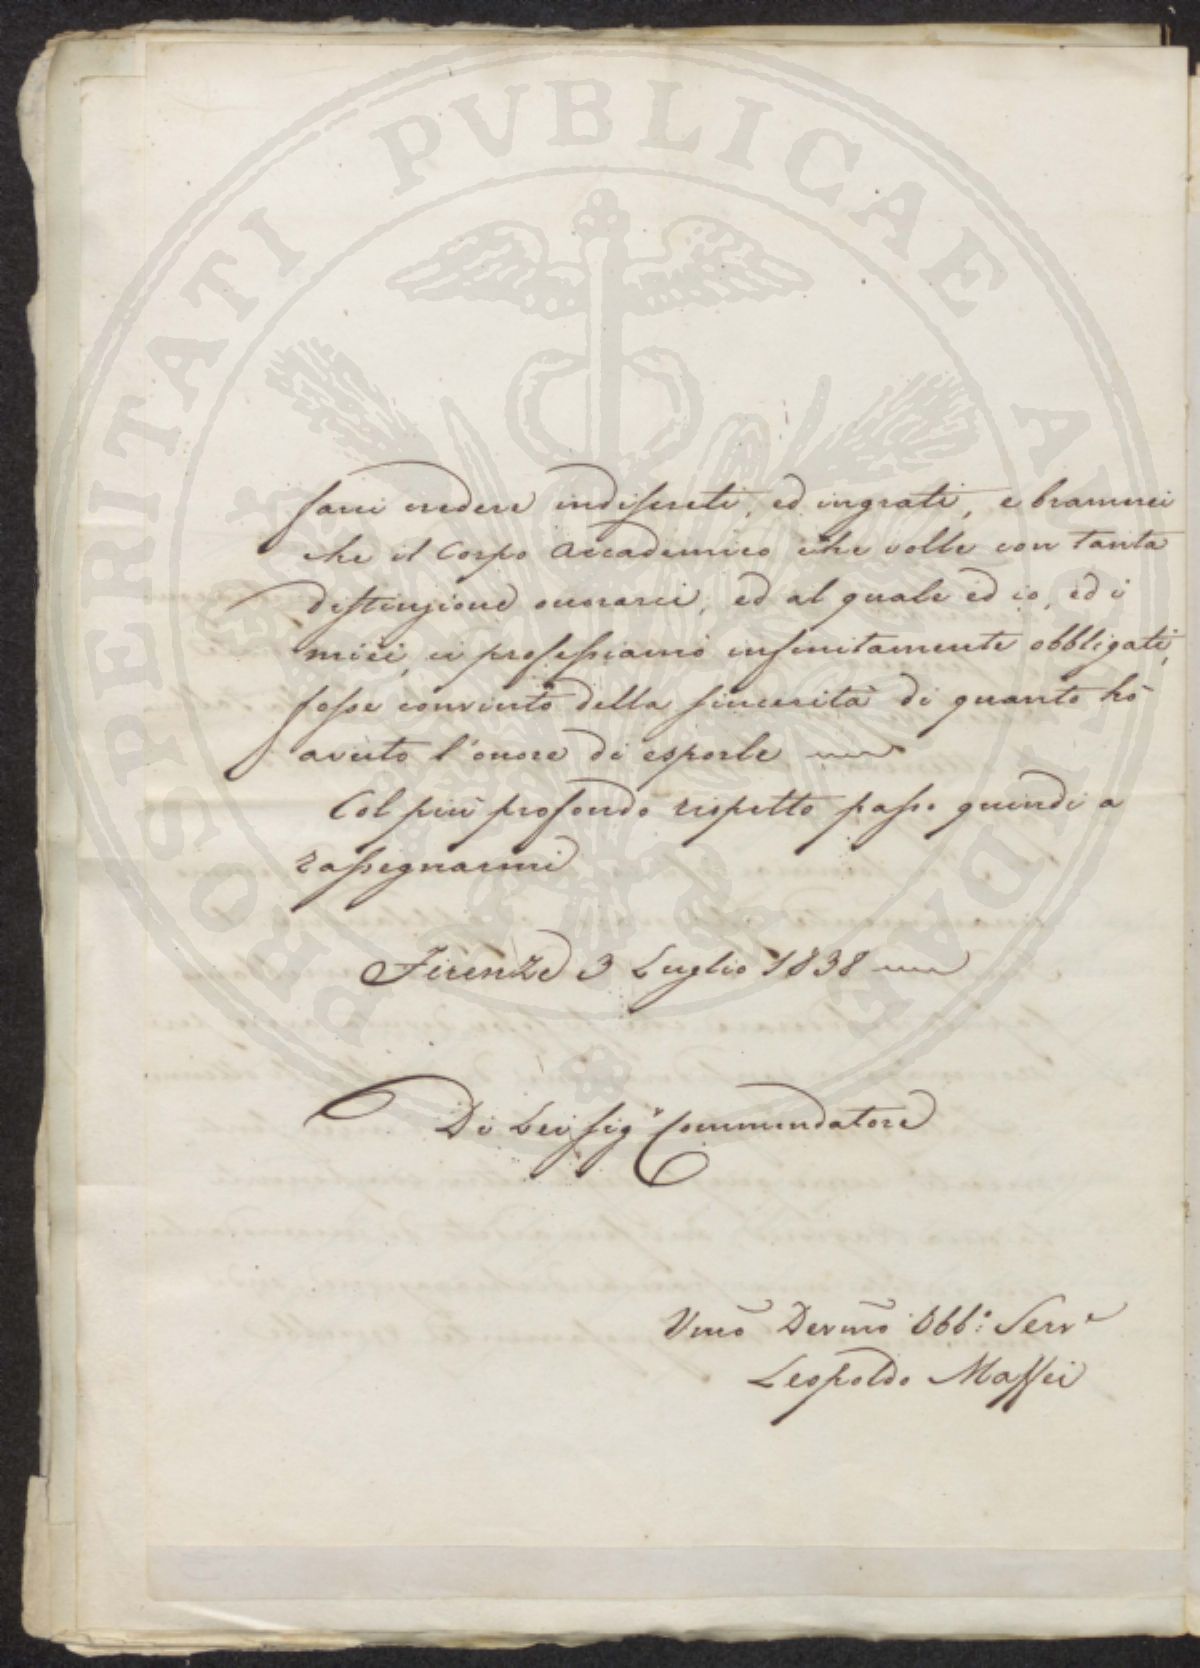 PROSPERITATI PUBLICAE AUGENDAE
farci credere indiscreti, ed ingrati, e bramerei
che il Corpo Accademico che volle con tanta
distinzione onorarci, ed al quale ed io, ed i
miei, ci professiamo infinitamente obbligati,
fosse convinto della sincerità di quanto hò
avuto l'onore di esporle
Col più profondo rispetto passo quindi a
rassegnarmi
Firenze 3 Luglio 1838
Di Lei Sig.r Commendatore
Umo Devmo Obb.o Serv.e
Leopoldo Maffei